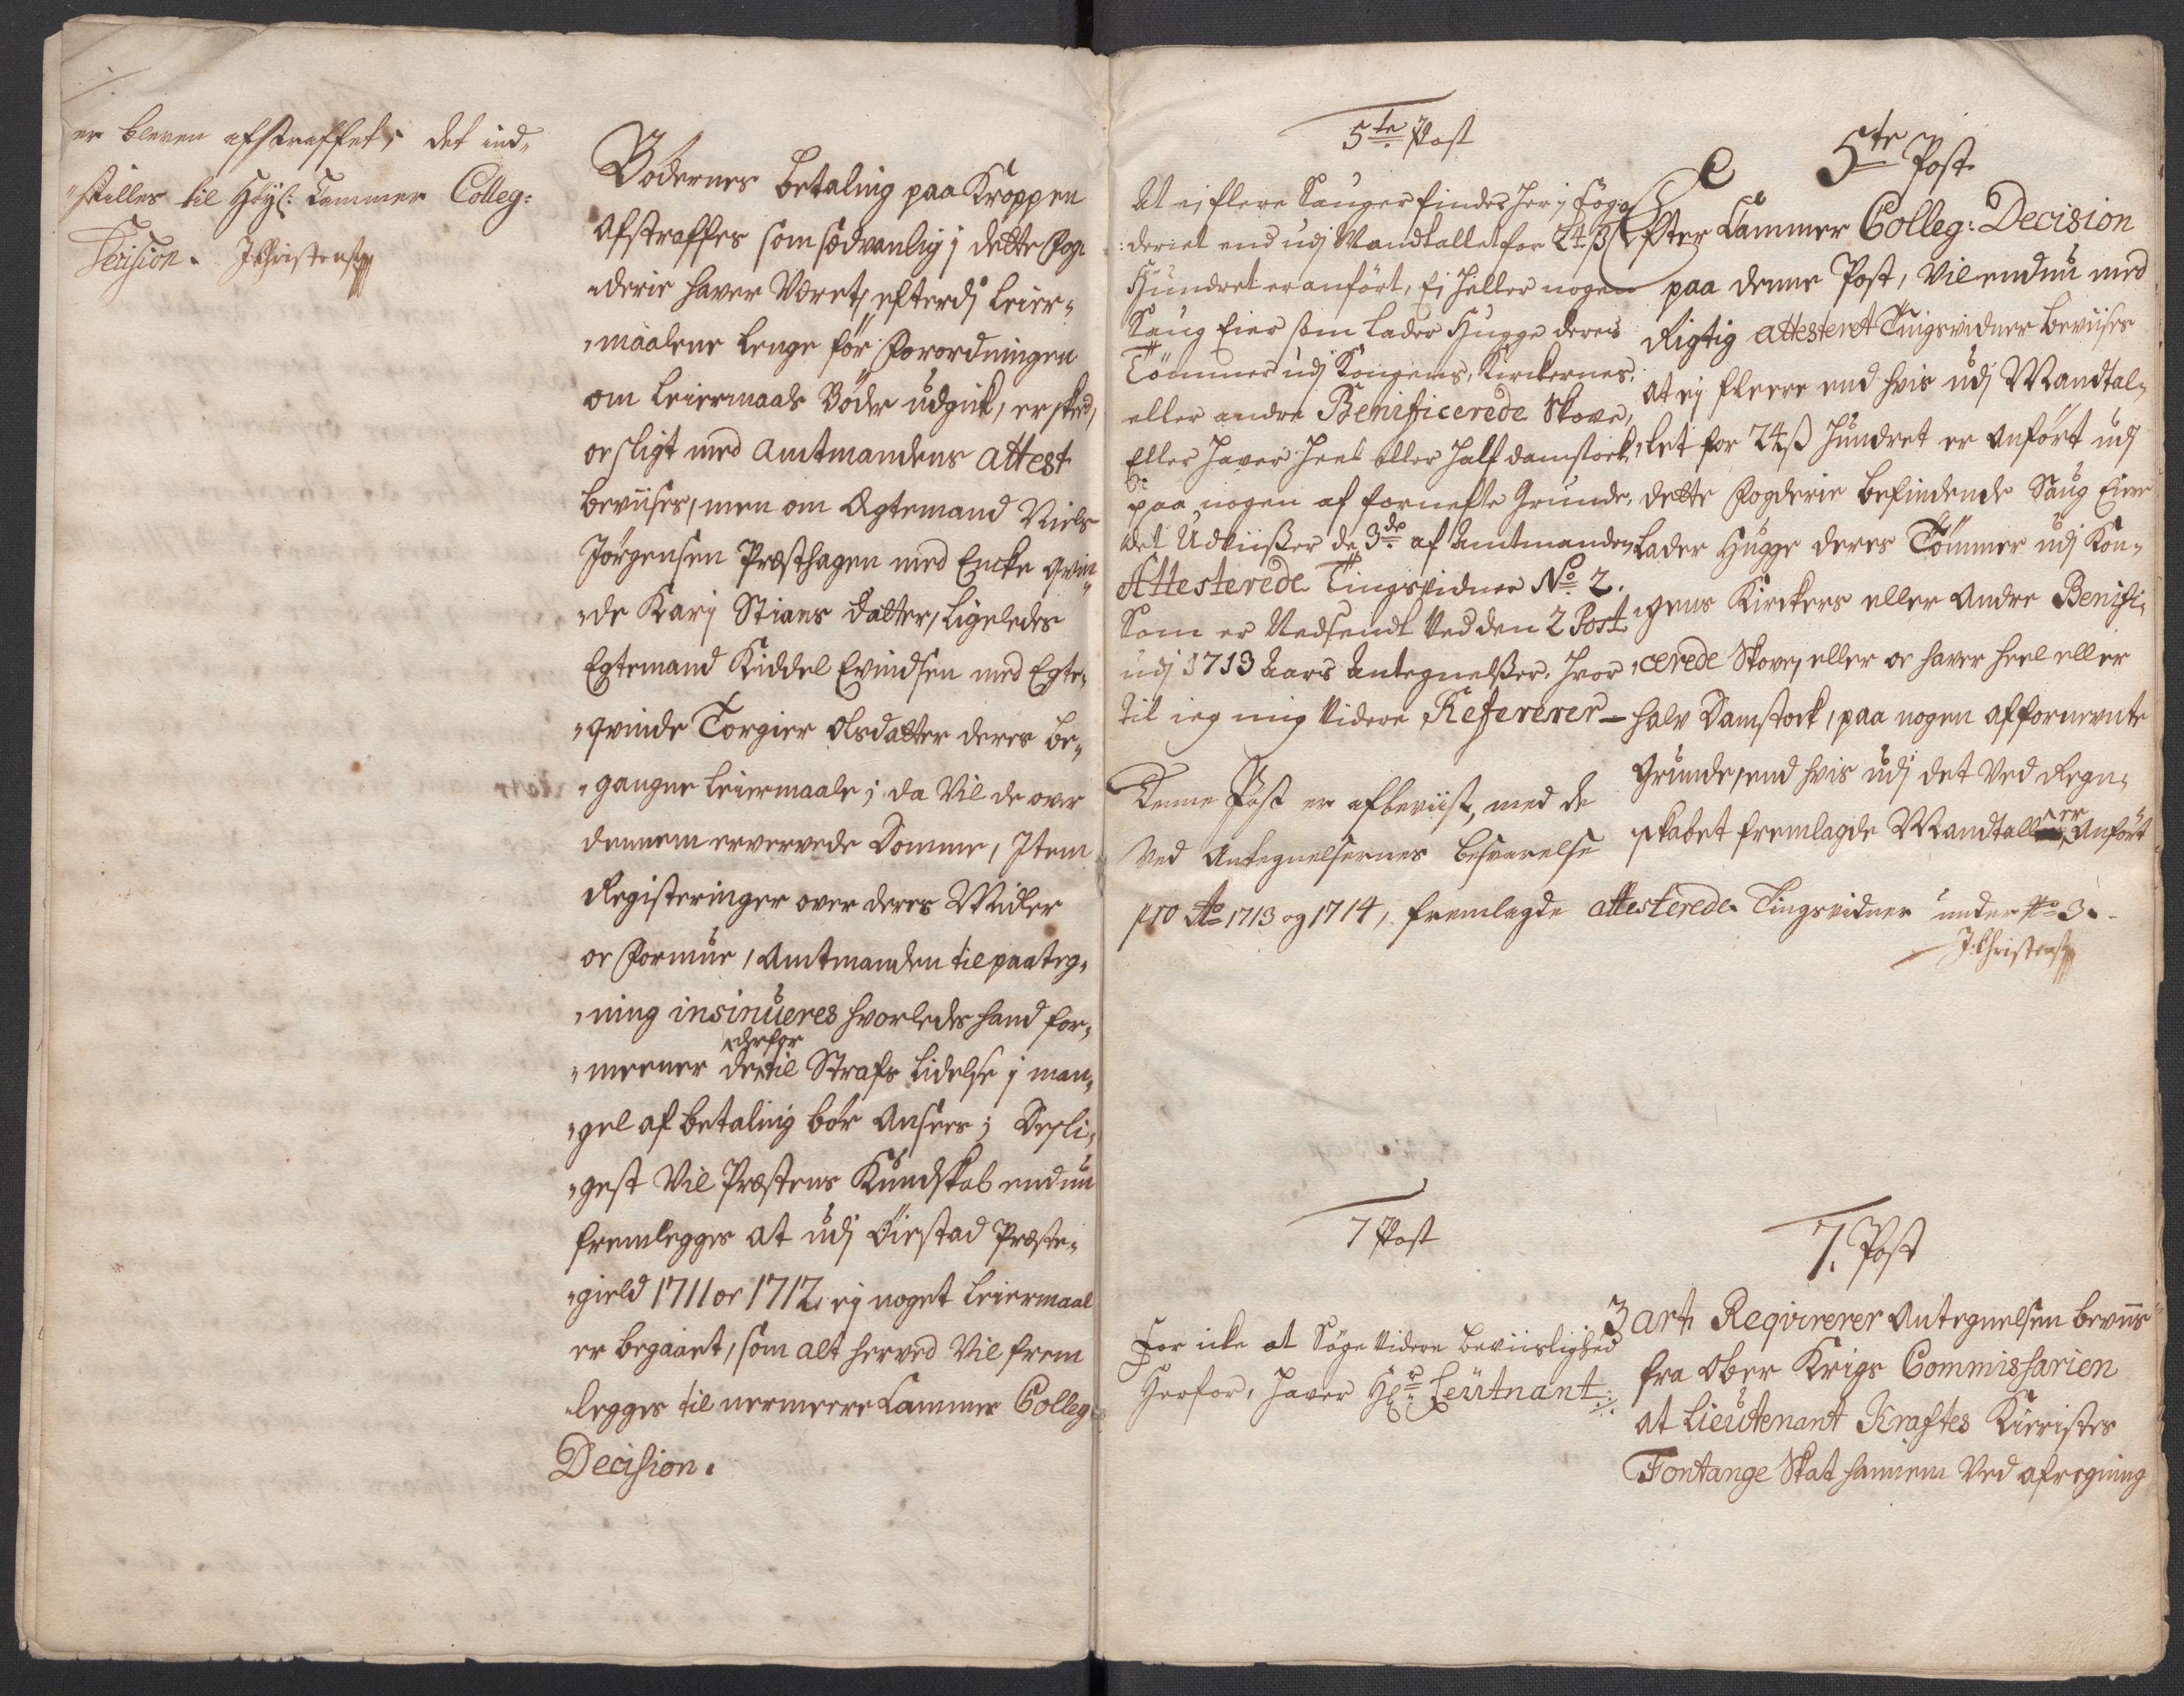 er bleven afstraffet, det ind-
stilles til Høyl: Cammer Colleg:
Decision. J Christens

Bödernes betaling paa Kroppen
Afstraffes som sædvanlig i dette Fog-
-derie haver Været, efterdj Leier-
-maalene lenge för Forordningen
om Leiermaals Böder udgik, er sked,
oc sligt med Amtmandens Attest
beviises, men om Egtemand Niels
Jörgensen Præsthagen med Encke qvin-
-de Karj Stians datter, ligeledes
Egtemand Kiddel Evindsen med Egte-
-qvinde Torgier Olsdatter deres be-
-gangne Leiermaale; da Vil de over
dennem ervervede Domme, Item
Registeringer over deres Midler
oc Formue, Amtmanden til paateg-
-ning insinueres hvorledes hand for-
derfor
-meener dertil Strafs lidelse i man-
-gel af betaling bör Ansees; Desli-
-gest Vil Præstens Kundskab endnu
fremlegges at udj Öiestad Præste-
-gield 1711 oc 1712 ej noget Leiermaal
er begaaet, som alt herved Vil frem
legges til nermeere Cammer Colleg
Decision.

5te Post
At ej flere Sauger findes her i Fog-
-deriet end udj Mandtallet for 24 ß
Hundret er anfört, Ej heller nogen
Saug Eier som lader Hugge deris
Tömmer udj Kongens, Kirckernes,
eller andre Benificerede Skove,
Eller haver heel eller half damstock
paa nogen af forneste Grunde,
det Udviißer de 3de af Amtmanden
Attesterede Tingsvidner No 2.
Som er Nedsendt Ved den 2 Post
udj 1713 Aars Antegnelßer, hvor
til ieg mig videre Refererer –
Denne Post er afbeviist, med de
Ved Antegnelsernes besvarelse
pro Ao 1713 og 1714, fremlagde attesterede Tingsvidner under No 3.
J. Christens

5te Post
Efter Cammer Colleg: Decision
paa denne Post, Vil endnu med
Rigtig attesteret Tingsvidner beviises
At ej fleere end hvis udj Mandtal-
-let for 24 ß Hundret er Anfört udj
dette Fogderie befindende Saug Eiere
Lader Hugge deres Tömmer udj Kon-
-gens Kirckers eller Andre Benifi-
-cerede Skove, eller oc haver heel eller
halv Damstock, paa nogen af fornevnte
Grunde, end hvis udj det Ved Regn-
er
-skabet fremlagde Mandtall Anfört

7 Post
For icke at Söge videre beviislighed
Herfor, haver Hr Leutnant

7. Post
3 art Reqvirerer Antegnelsen beviis
fra Ober Krigs Commissarien
at Lieutenant Kraftes Kieristes
Fontange Skat hannem Ved afregning